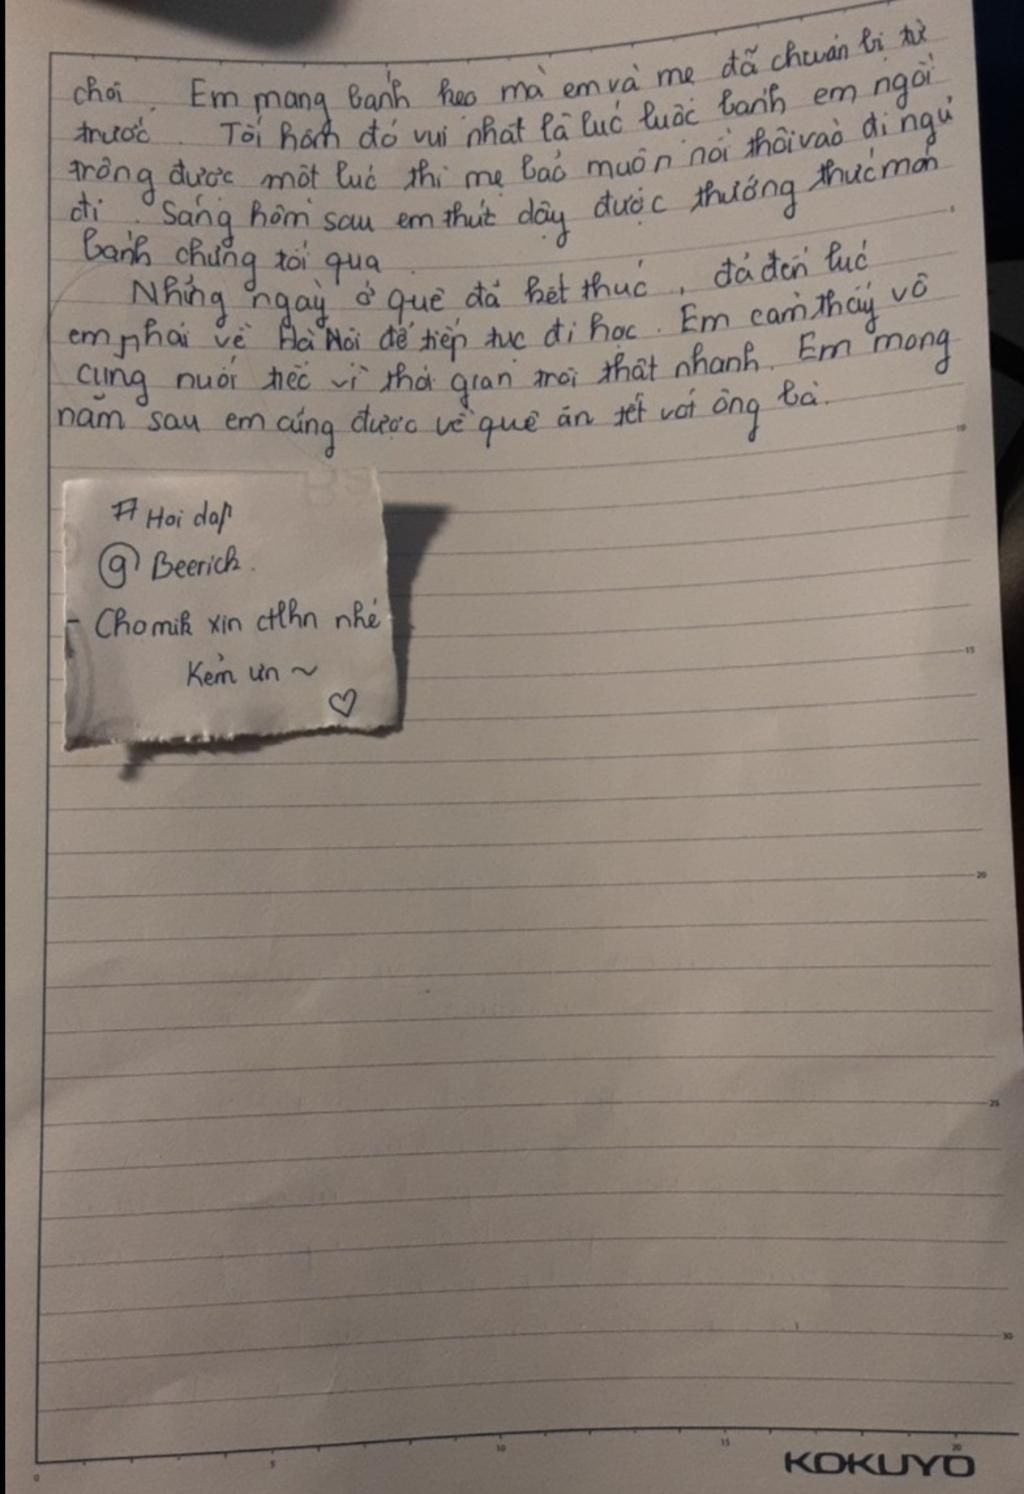 chơi. Em mang bánh kẹo mà em và mẹ đã chuẩn bị từ
trước. Tối hôm đó vui nhất là lúc luộc bánh em ngồi
trông được một lúc thì mẹ bảo muộn rồi thôi vào đi ngủ
đi. Sáng hôm sau em thức dậy được thưởng thức món
bánh chưng tối qua.
Những ngày ở quê đã kết thúc, đã đến lúc
em phải về Hà Nội để tiếp tục đi học. Em cảm thấy vô
cùng nuối tiếc vì thời gian trôi thật nhanh. Em mong
năm sau em cũng được về quê ăn tết với ông bà.
# Hoi dap
@ Beerich.
- Cho mik xin ctlhn nhé
Kẻm ưn ~
5
10
15
20
25
30
0 5 10 15 20
KOKUYO